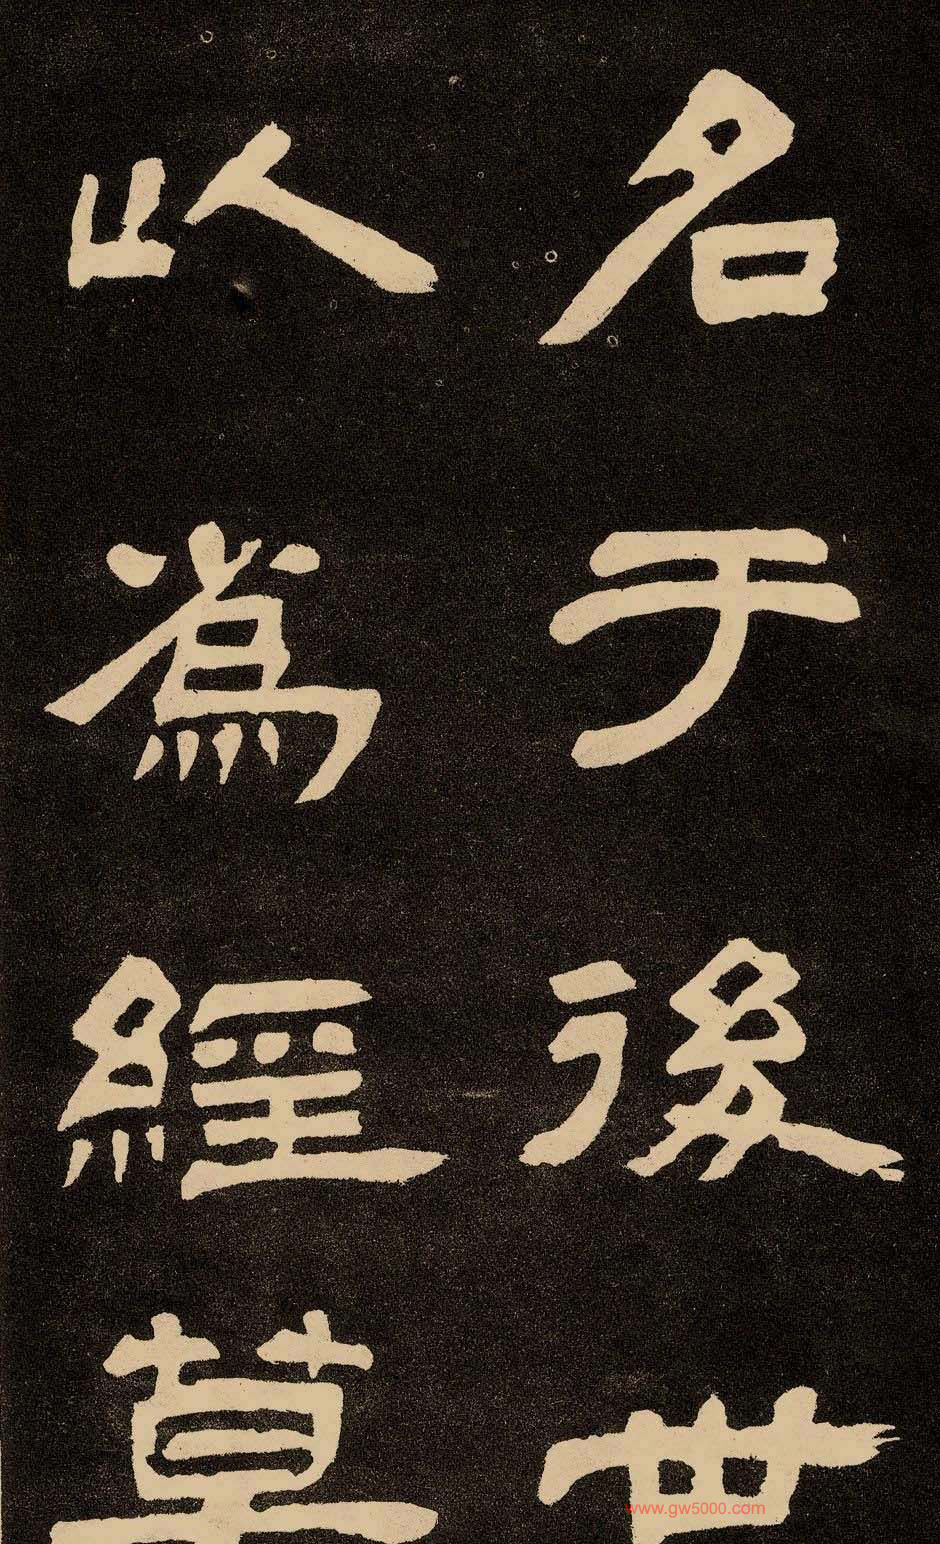 名于後世
以爲經
www.gw5000.com